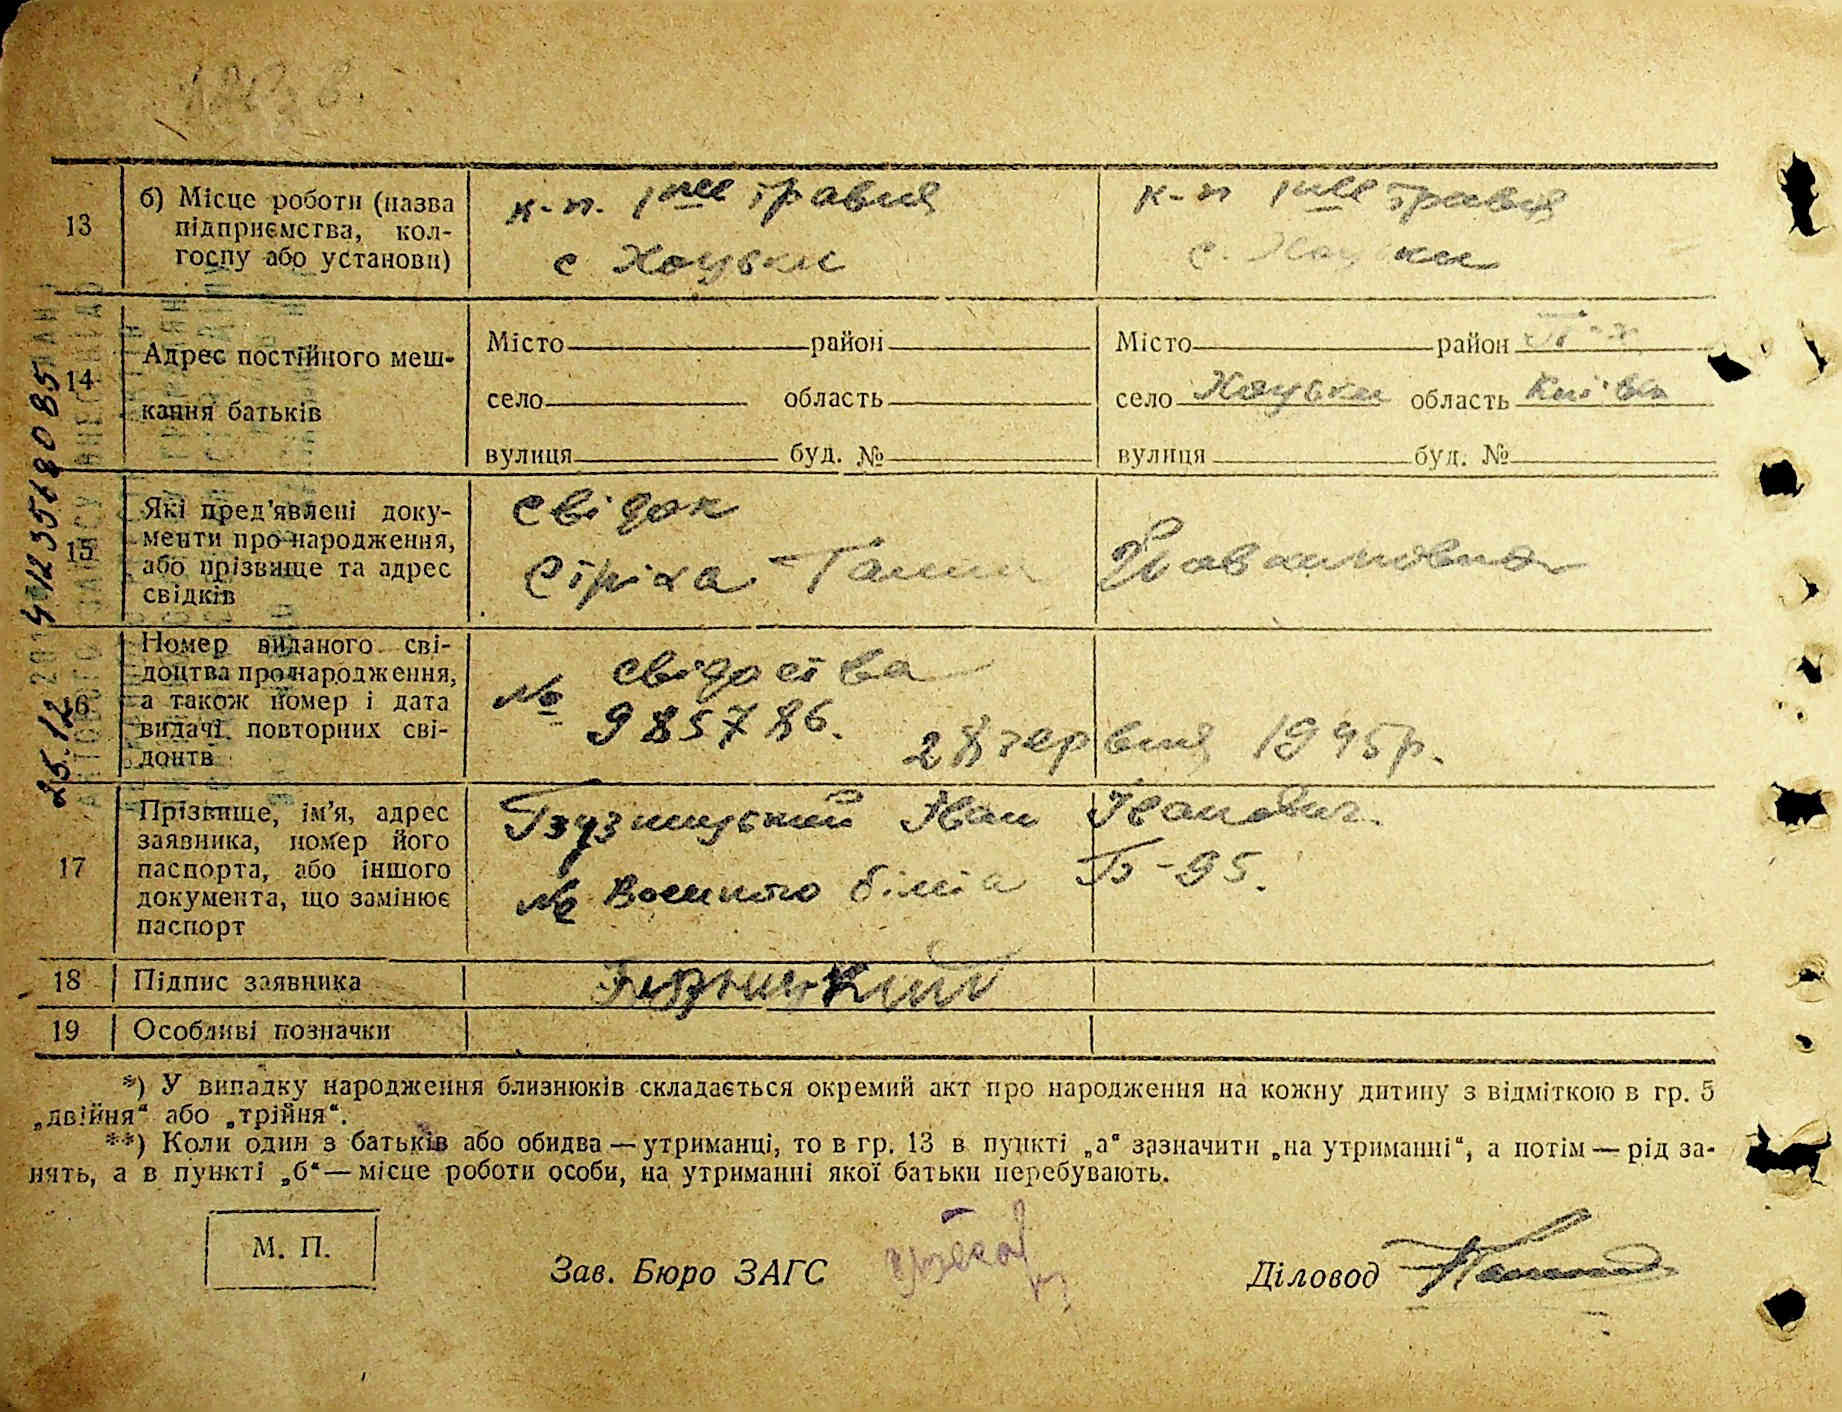 13
б) Місце роботи (назва підприємства, кол-
госпу або установи)
к-п. 1ше травня
с Хоцьки
к-п 1ше травня
с. Хоцьки
14
Адрес постійного меш-
кання батьків
Місто район
село область
вулиця буд. №
Місто район
село Хоцьки область Київ
вулиця буд. №
15
Які пред'явлені доку-
менти про народження,
або прізвище та адрес
свідків
свідок
Стріха Ганна
16
Номер виданого сві-
доцтва про народження,
а також номер і дата
видачі повторних сві-
доцтв
свідоства
№ 985786. 28 червня 1945р.
17
Прізвище, ім'я, адрес
заявника, номер його
паспорта, або іншого
документа, що замінює
паспорт
Іван Іванович.
№ Военого біліта -95.
18 Підпис заявника
19 Особливі позначки
*) У випадку народження близнюків складається окремий акт про народження на кожну дитину з відміткою в гр. 5
„двійня“ або „трійня“.
**) Коли один з батьків або обидва — утриманці, то в гр. 13 в пункті „а“ зазначити „на утриманні“, а потім — рід за-
нять, а в пункті „б“ — місце роботи особи, на утриманні якої батьки перебувають.
М. П.
Зав. Бюро ЗАГС
Діловод